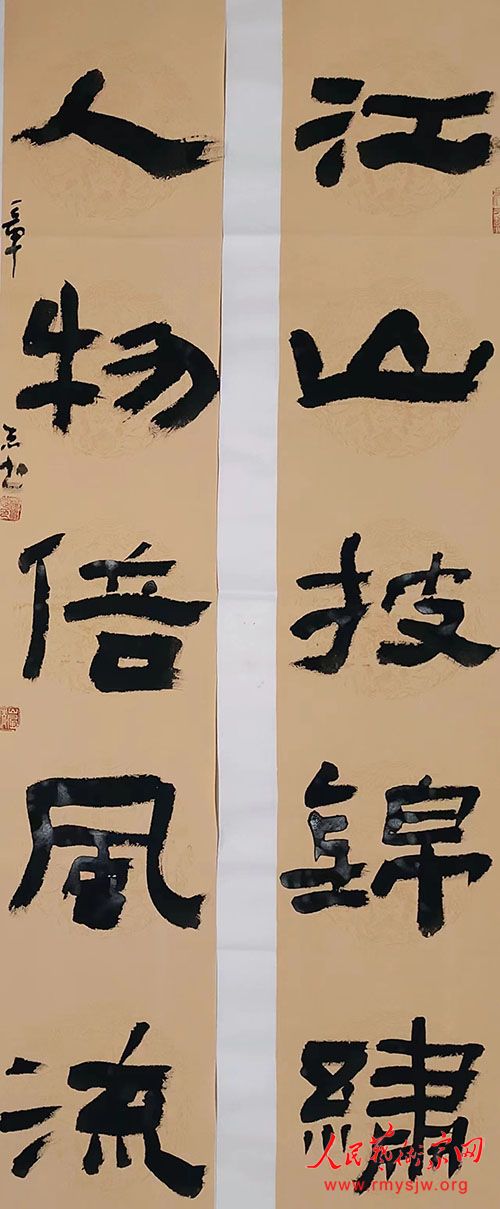 江山披錦繡
人物倍風流
章
志书
人民藝術家网
www.rmysjw.org